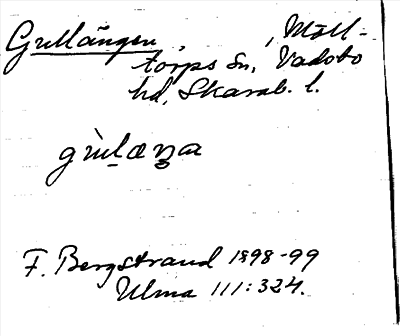 Gullängen, , Möll-
torps Sn, Vadsbo
hd, Skarab. l.
F. Bergstrand 1898-99
Ulma 111:324.